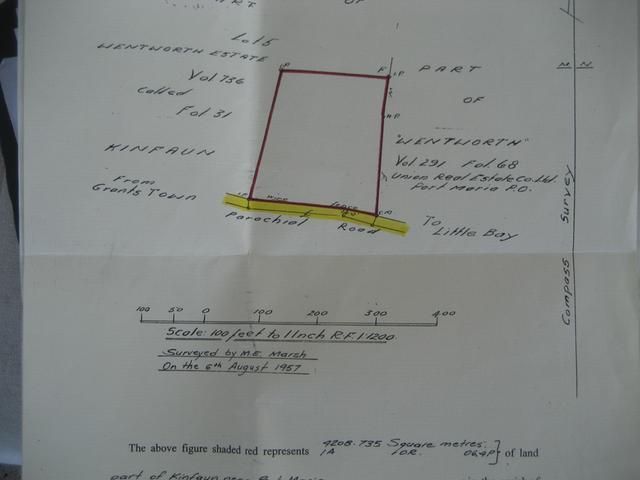 PART OF
Lot 5
WENTWORTH ESTATE
Vol 736
Called
Fol 31
KINFAUN
From
Grants Town
PART
OF
"WENTWORTH"
Vol. 291 Fol. 68
Union Real Estate Co. Ltd.
Port Maria P.O.
To
Little Bay
I.P
F I.P
I.P
Wire Fence
Parochial Road
N N
Compass Survey
100 50 0 100 200 300 400
Scale: 100 feet to 1 Inch R.F. 1:1200
Surveyed by M.E. Marsh
On the 6th August 1957
4208.735 Square metres
The above figure shaded red represents 1A 0R. 06.4P of land
part of Kinfaun near Port Maria